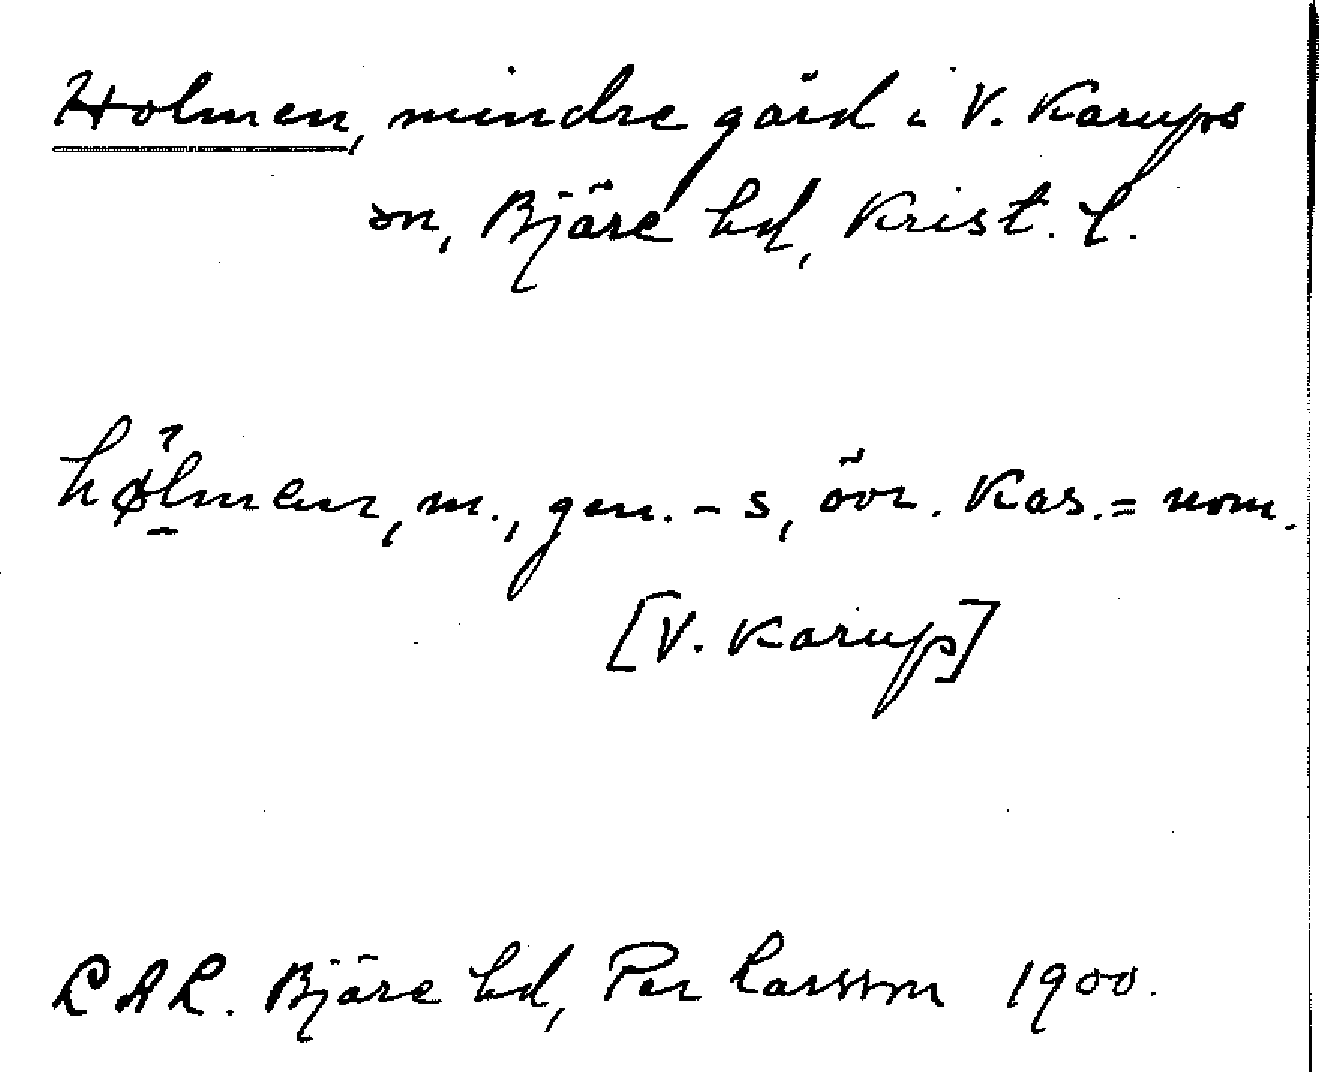 Holmen, mindre gård i V. Karups
sn, Bjäre hd, Krist. l.
hølmen, m., gen. - s, övr. kas. = nom.
[V. Karup]
LAL. Bjäre hd, Per Larsson 1900.